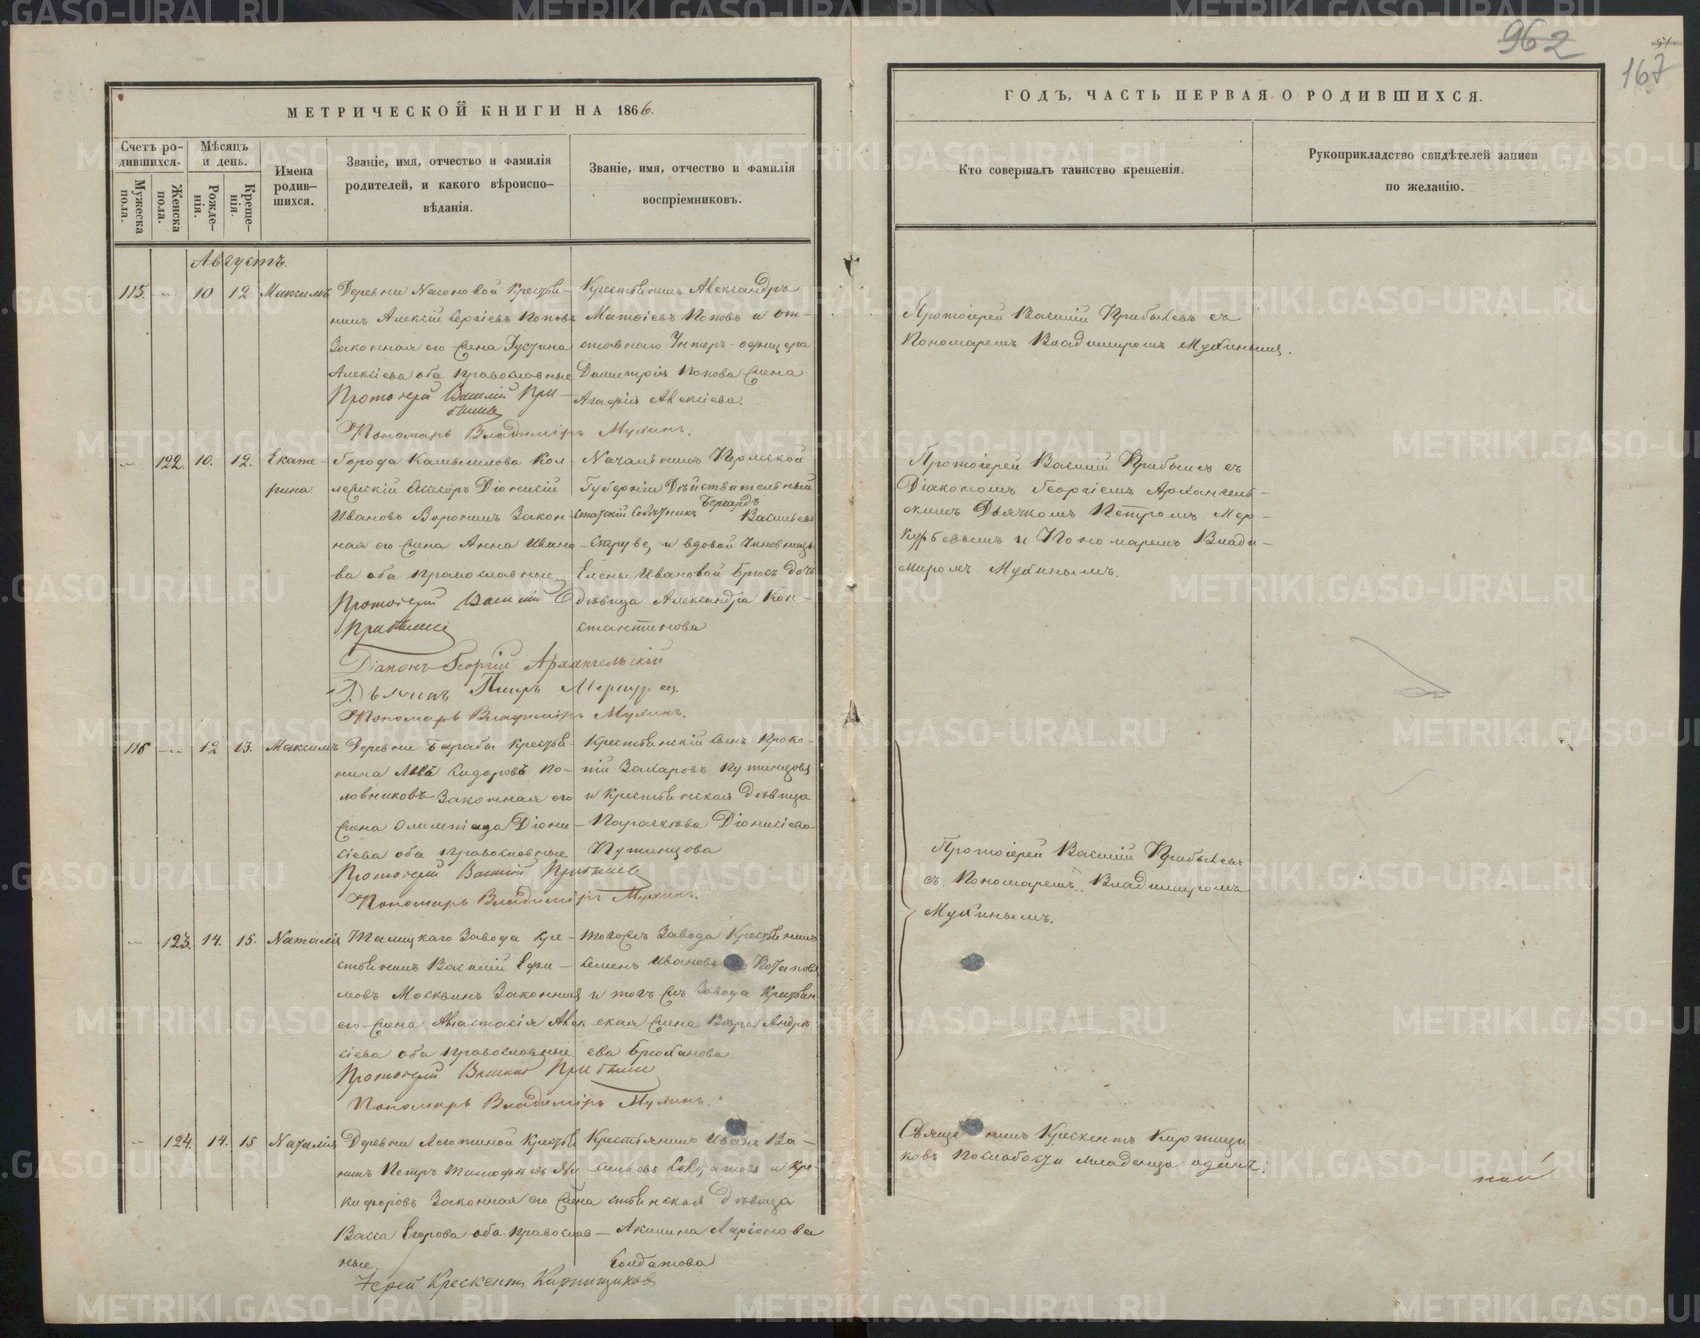 962
167
МЕТРИЧЕСКОЙ КНИГИ НА 1866.
ГОДЪ, ЧАСТЬ ПЕРВАЯ О РОДИВШИХСЯ.
Счетъ ро-
дившихся.
Мужеска
пола.
Женска
пола.
Мѣсяцъ
и день.
Рожде-
нія.
Креще-
нія.
Имена
родив-
шихся.
Званіе, имя, отчество и фамилія
родителей, и какого вѣроиспо-
вѣданія.
Званіе, имя, отчество и фамилія
воспріемниковъ.
Кто совершалъ таинство крещенія.
Рукоприкладство свидѣтелей записи
по желанію.
Августъ.
115. 10 12 Максимъ
Деревни Крестья-
нинъ Алексій Сергіевъ Поповъ
Законная его жена Іустина
Алексіева оба православные
Протоіерей Василій При-
былевъ
Пономарь Владиміръ Мухинъ.
Крестьянинъ Александръ
Матѳіевъ Поповъ и от-
ставного Унтеръ-офицера
Димитрія Попова жена
Агафія Алексіева.
Протоіерей Василій Прибылевъ съ
Пономаремъ Владиміромъ Мухинымъ.
122. 10. 12. Екате-
рина
Города Камышлова Кол-
лежскій Асессоръ Діонисій
Ивановъ Воронинъ Закон-
ная его жена Анна Ивано-
ва оба православные
Протоіерей Василій
Прибылевъ
Діаконъ Георгій Архангельскій
Дьячекъ Петръ
Пономарь Владиміръ Мухинъ.
Начальникъ Пермской
Губерніи Дѣйствительный
Статскій Совѣтникъ Бернардъ Васильевъ
Струве, и вдовой Чиновницы
Елены Ивановой Брюсъ дочь
дѣвица Александра Кон-
стантинова
Протоіерей Василій Прибылевъ съ
Діакономъ Георгіемъ Архангель-
скимъ Дьячкомъ Петромъ Мер-
курьевымъ и Пономаремъ Влади-
міромъ Мухинымъ.
116 12 13. Максимъ
Деревни Барабы Крестья-
нина Сидоровъ По-
ловниковъ Законная его
жена Олимпіада Діони-
сіева оба православные
Протоіерей Василій Прибылевъ
Пономарь Владиміръ Мухинъ.
Крестьянскій сынъ Проко-
пій Захаровъ Путинцовъ
и крестьянская дѣвица
Параскева Діонисіева
Путинцова
Протоіерей Василій Прибылевъ
съ Пономаремъ Владиміромъ
Мухинымъ.
123. 14. 15. Наталія
Талицкаго Завода Кре-
стьянинъ Василій Ефи-
мовъ Москвинъ Законная
его жена Анастасія Алек-
сіева оба православные
Протоіерей Василій Прибылевъ
Пономарь Владиміръ Мухинъ.
Тогожъ Завода Крестьянинъ
Семенъ Ивановъ Потаповъ
и тогожъ Завода Крестьян-
ская жена Вѣра Андре-
ева Брюханова
124. 14. 15 Наталія
Деревни Крестья-
нинъ Петръ Тимофѣевъ Ни-
кифоровъ Законная его жена
Васса Егорова оба православ-
ные.
Іерей Крескентъ Кирпищиковъ
Крестьянинъ Иванъ Ва-
сильевъ Солдатовъ и Кре-
стьянская Дѣвица
Акилина Ларіонова
Солдатова
Священникъ Крескентъ Кирпищи-
ковъ по слабости младенца одинъ.